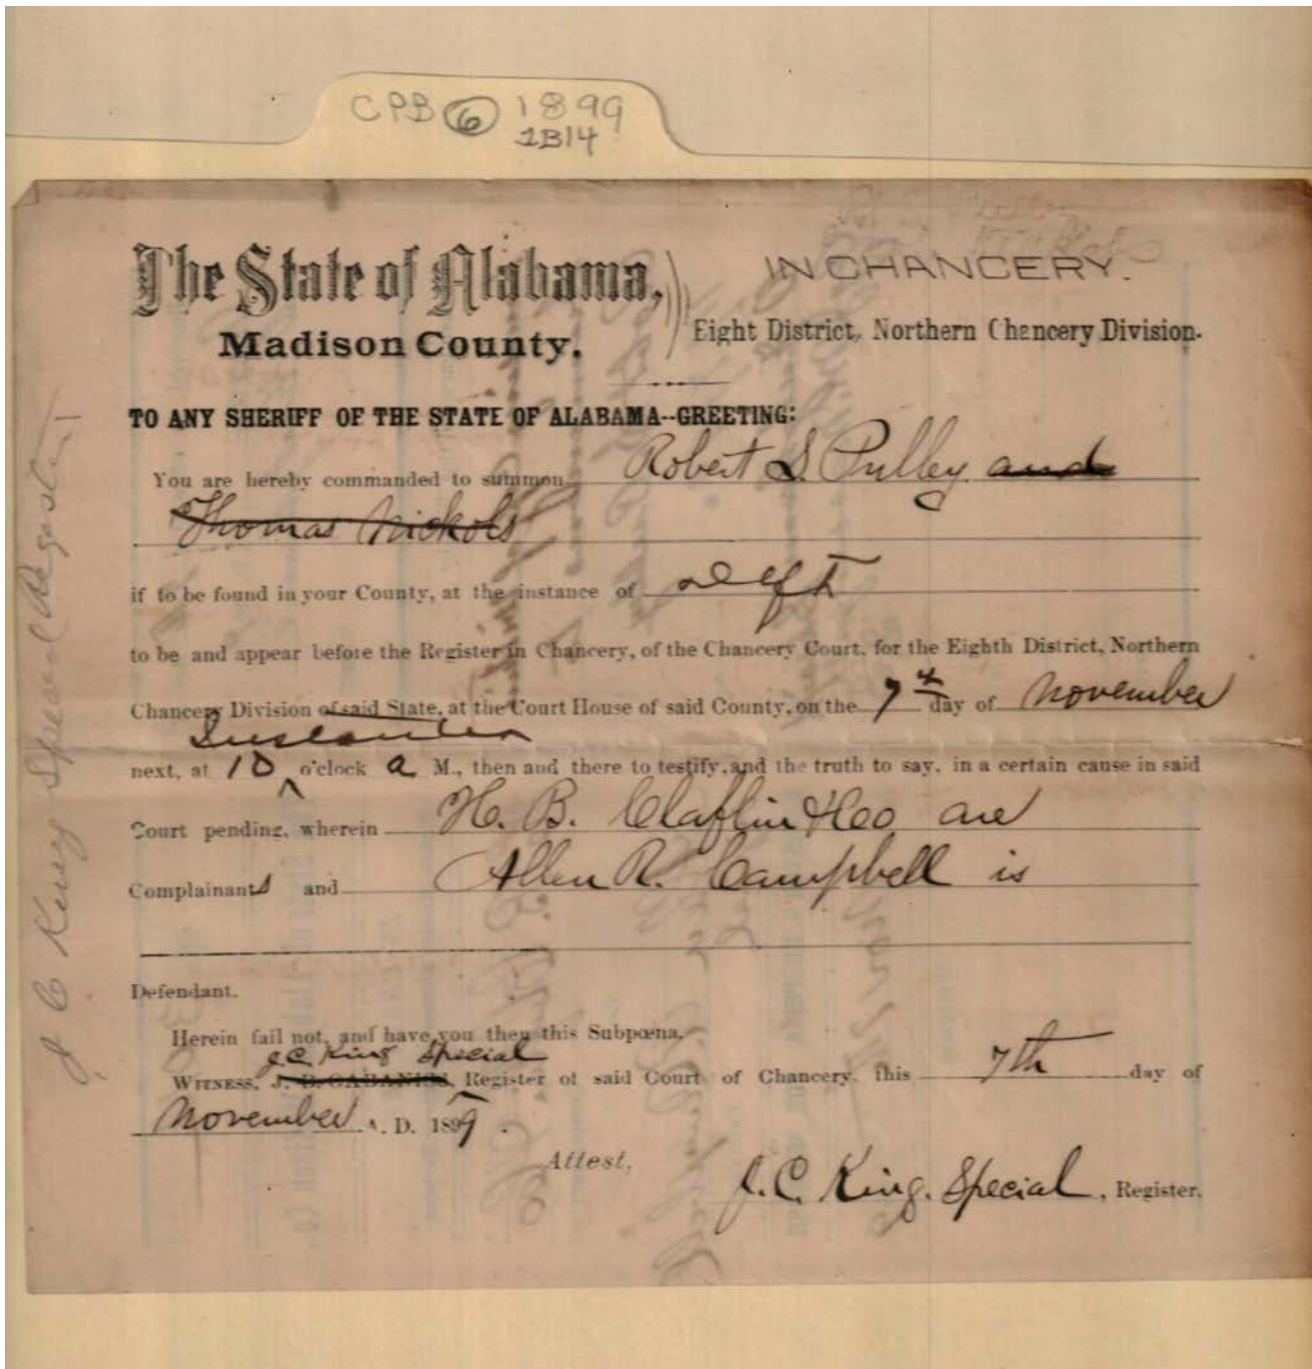 CPB 6 1899
2B14
The State of Alabama,
Madison County.
IN CHANCERY.
Eight District, Northern Chancery Division.
TO ANY SHERIFF OF THE STATE OF ALABAMA--GREETING:
You are hereby commanded to summon Robert S. Pulley and
Thomas Nickols
if to be found in your County, at the instance of Deft
to be and appear before the Register in Chancery, of the Chancery Court, for the Eighth District, Northern
Chancery Division of said State, at the Court House of said County, on the 7th day of November
Instanter
next, at 10 o'clock a M., then and there to testify, and the truth to say, in a certain cause in said
Court pending, wherein H. B. Claflin & Co are
Complainants and Allen R. Campbell is
Defendant.
Herein fail not, and have you then this Subpœna.
J.C King Special
WITNESS, J. B. CABANISS, Register of said Court of Chancery, this 7th day of
November A. D. 1899.
Attest,
J. C. King. Special, Register.
J C King Special Register